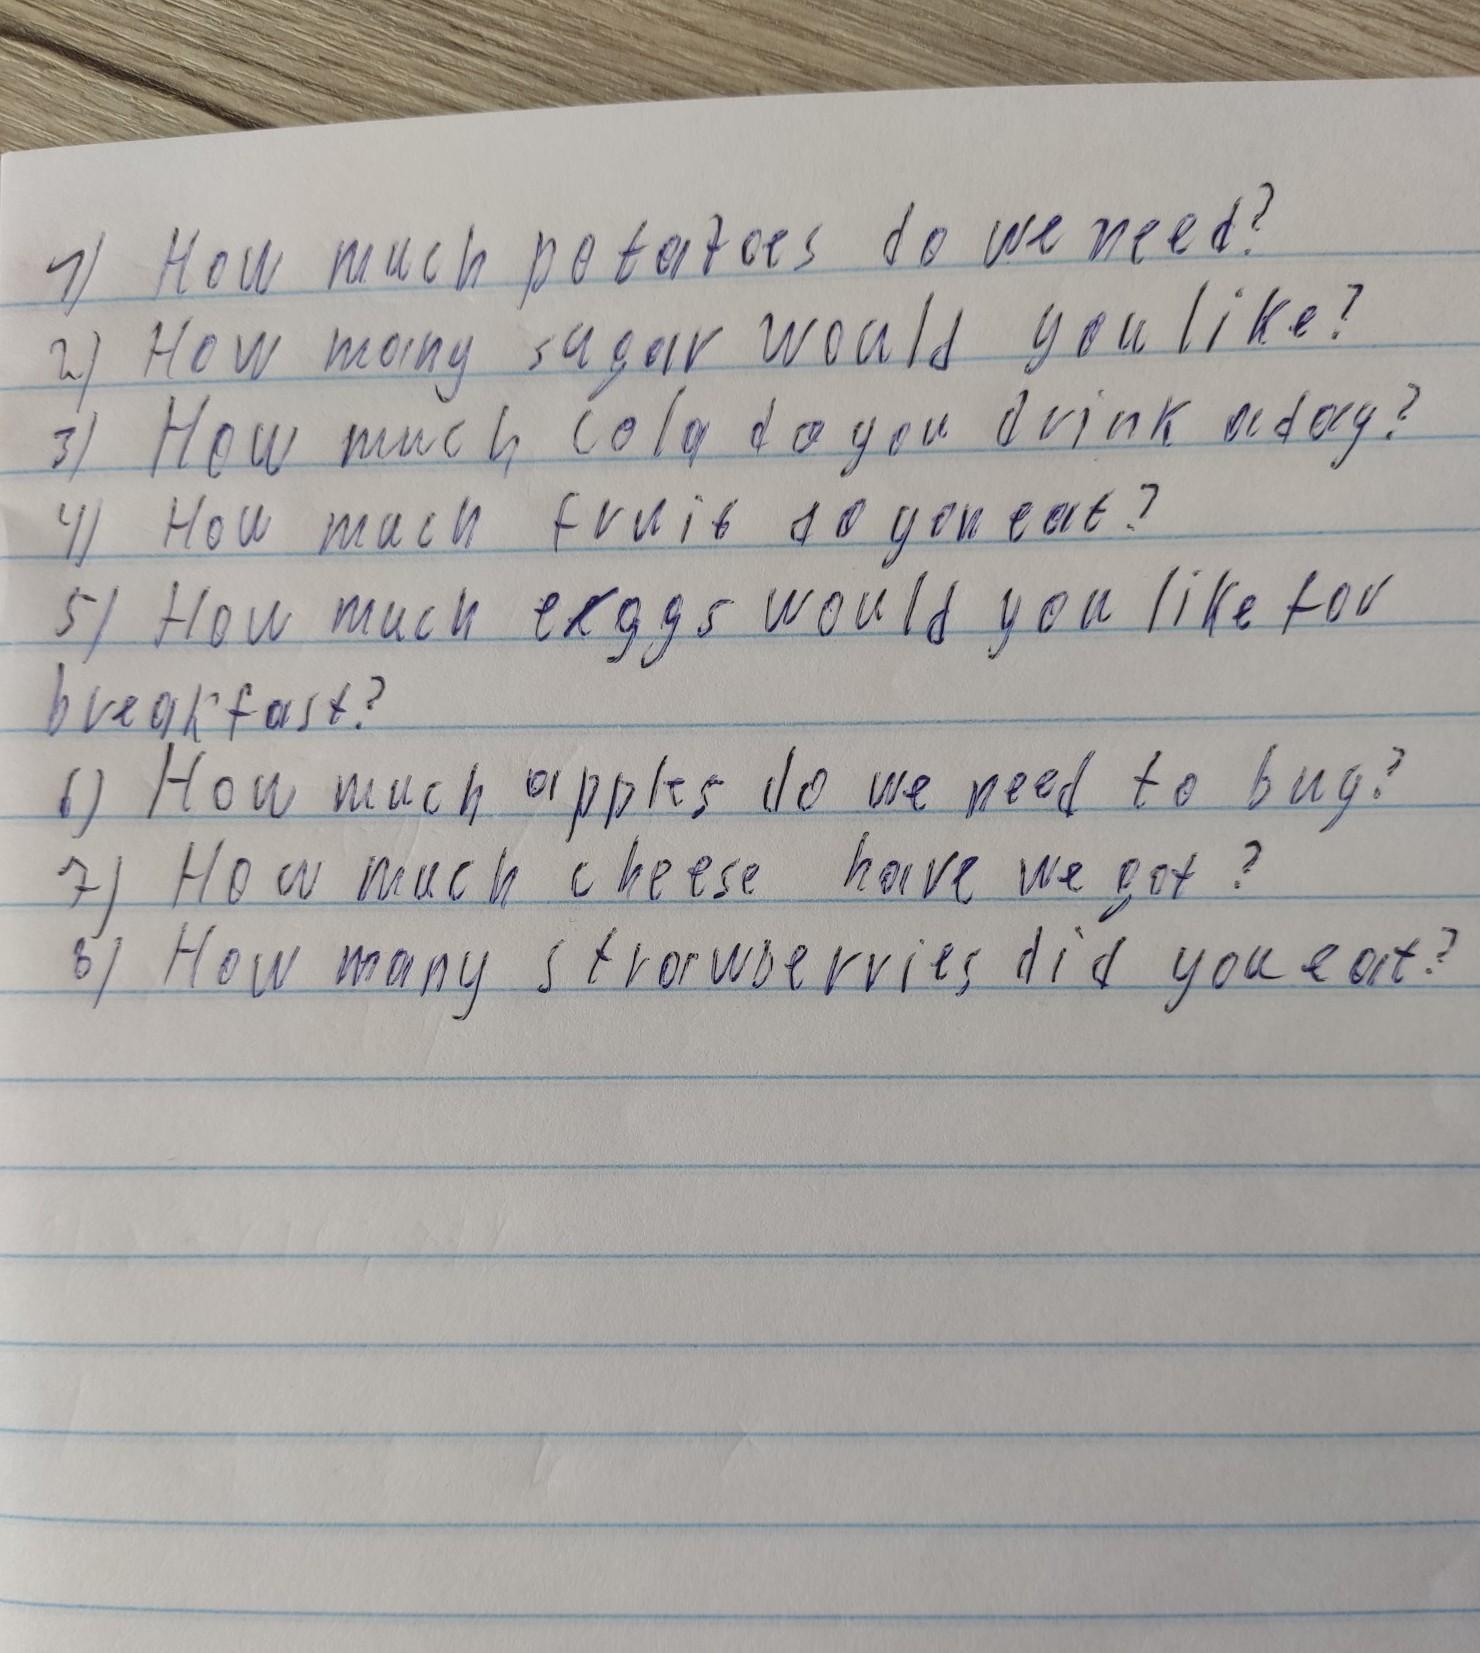 1) How much potatoes do we need?
2) How many sugar would you like?
3) How much cola do you drink a day?
4) How much fruit do you eat?
5) How much eggs would you like for
breakfast?
6) How much apples do we need to buy?
7) How much cheese have we got?
8) How many strawberries did you eat?